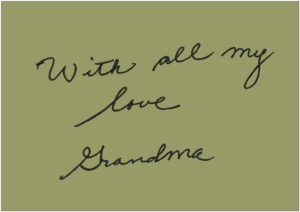 With all my
love
Grandma